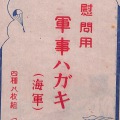 慰問用
軍事ハガキ
(海軍)
四種八枚組